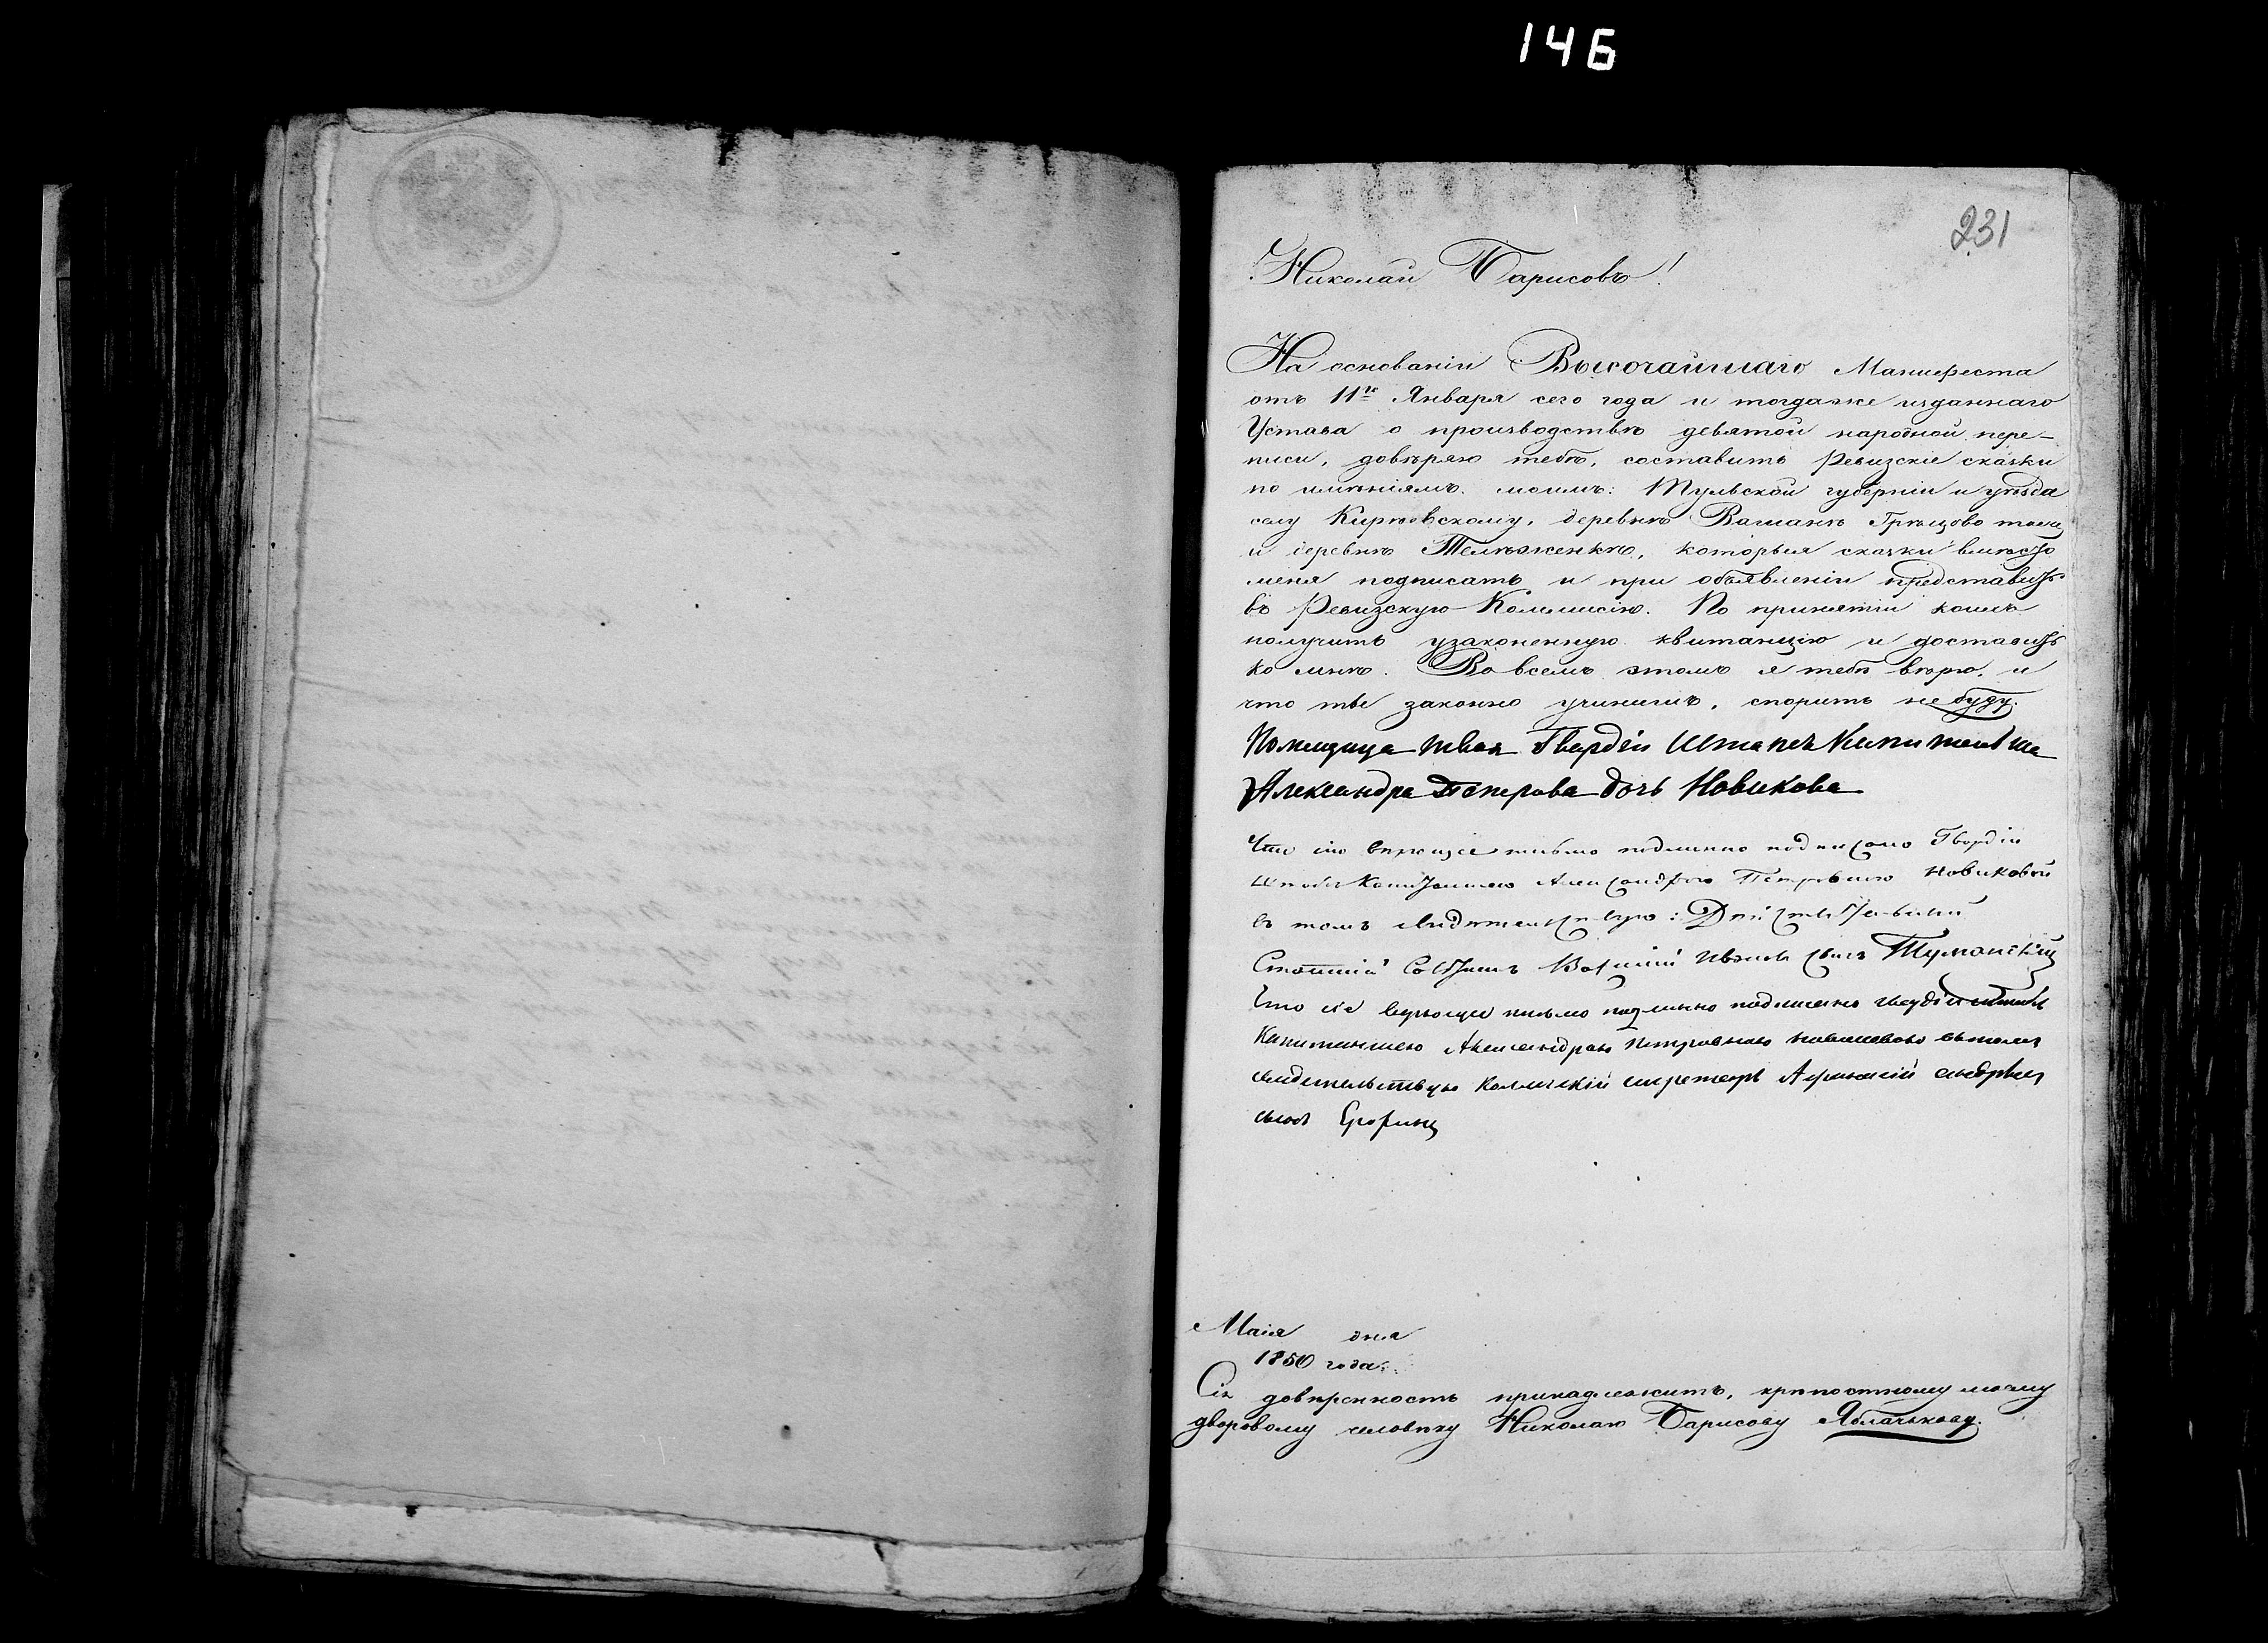 146
231
Николай Барисовъ!
На основаніи Высочайшаго Манифеста
отъ 11го Января сего года и тогда же изданнаго
Устава о производствѣ девятой народной пере-
писи, довѣряю тебѣ, составить Ревизскіе сказки
по имѣніямъ моимъ: Тульской губерніи и уѣзда
селу Кирѣевскому, деревнѣ Вашанѣ Грецово тожъ
и деревнѣ Телѣженкѣ, которыя сказки вмѣсто
меня подписать и при объявленіи представить
въ Ревизскую Коммисію. По принятіи коихъ
получить узаконенную квитанцію и доставить
ко мнѣ. Во всемъ этомъ я тебѣ вѣрю, и
что ты законно учинишь, спорить не буду.
Помещица твоя Гвардіи Штапсъ Капитанша
Александра Петрова дочь Новикова
Что сіе вѣрющіе письмо подлинно подписано Гвардіи
Штабсъ Капитаншею Александрою Петровною Новиковой
въ томъ свидѣтельствую: Дѣйствительный
Статскій Совѣтникъ Василій Ивановъ сынъ Туманскій
Что сіе верющее письмо подлинно подписано гвардіи штабсъ
Капитаншею Александрою Петровною Новиковою въ томъ
свидетельствую Колежскій секретарь Афанасій андреевъ
сынъ
Маія дня
1850 года.
Сія довѣренность принадлежитъ, крѣпостному моему
дворовому человѣку Николаю Барисову Яблачькову.